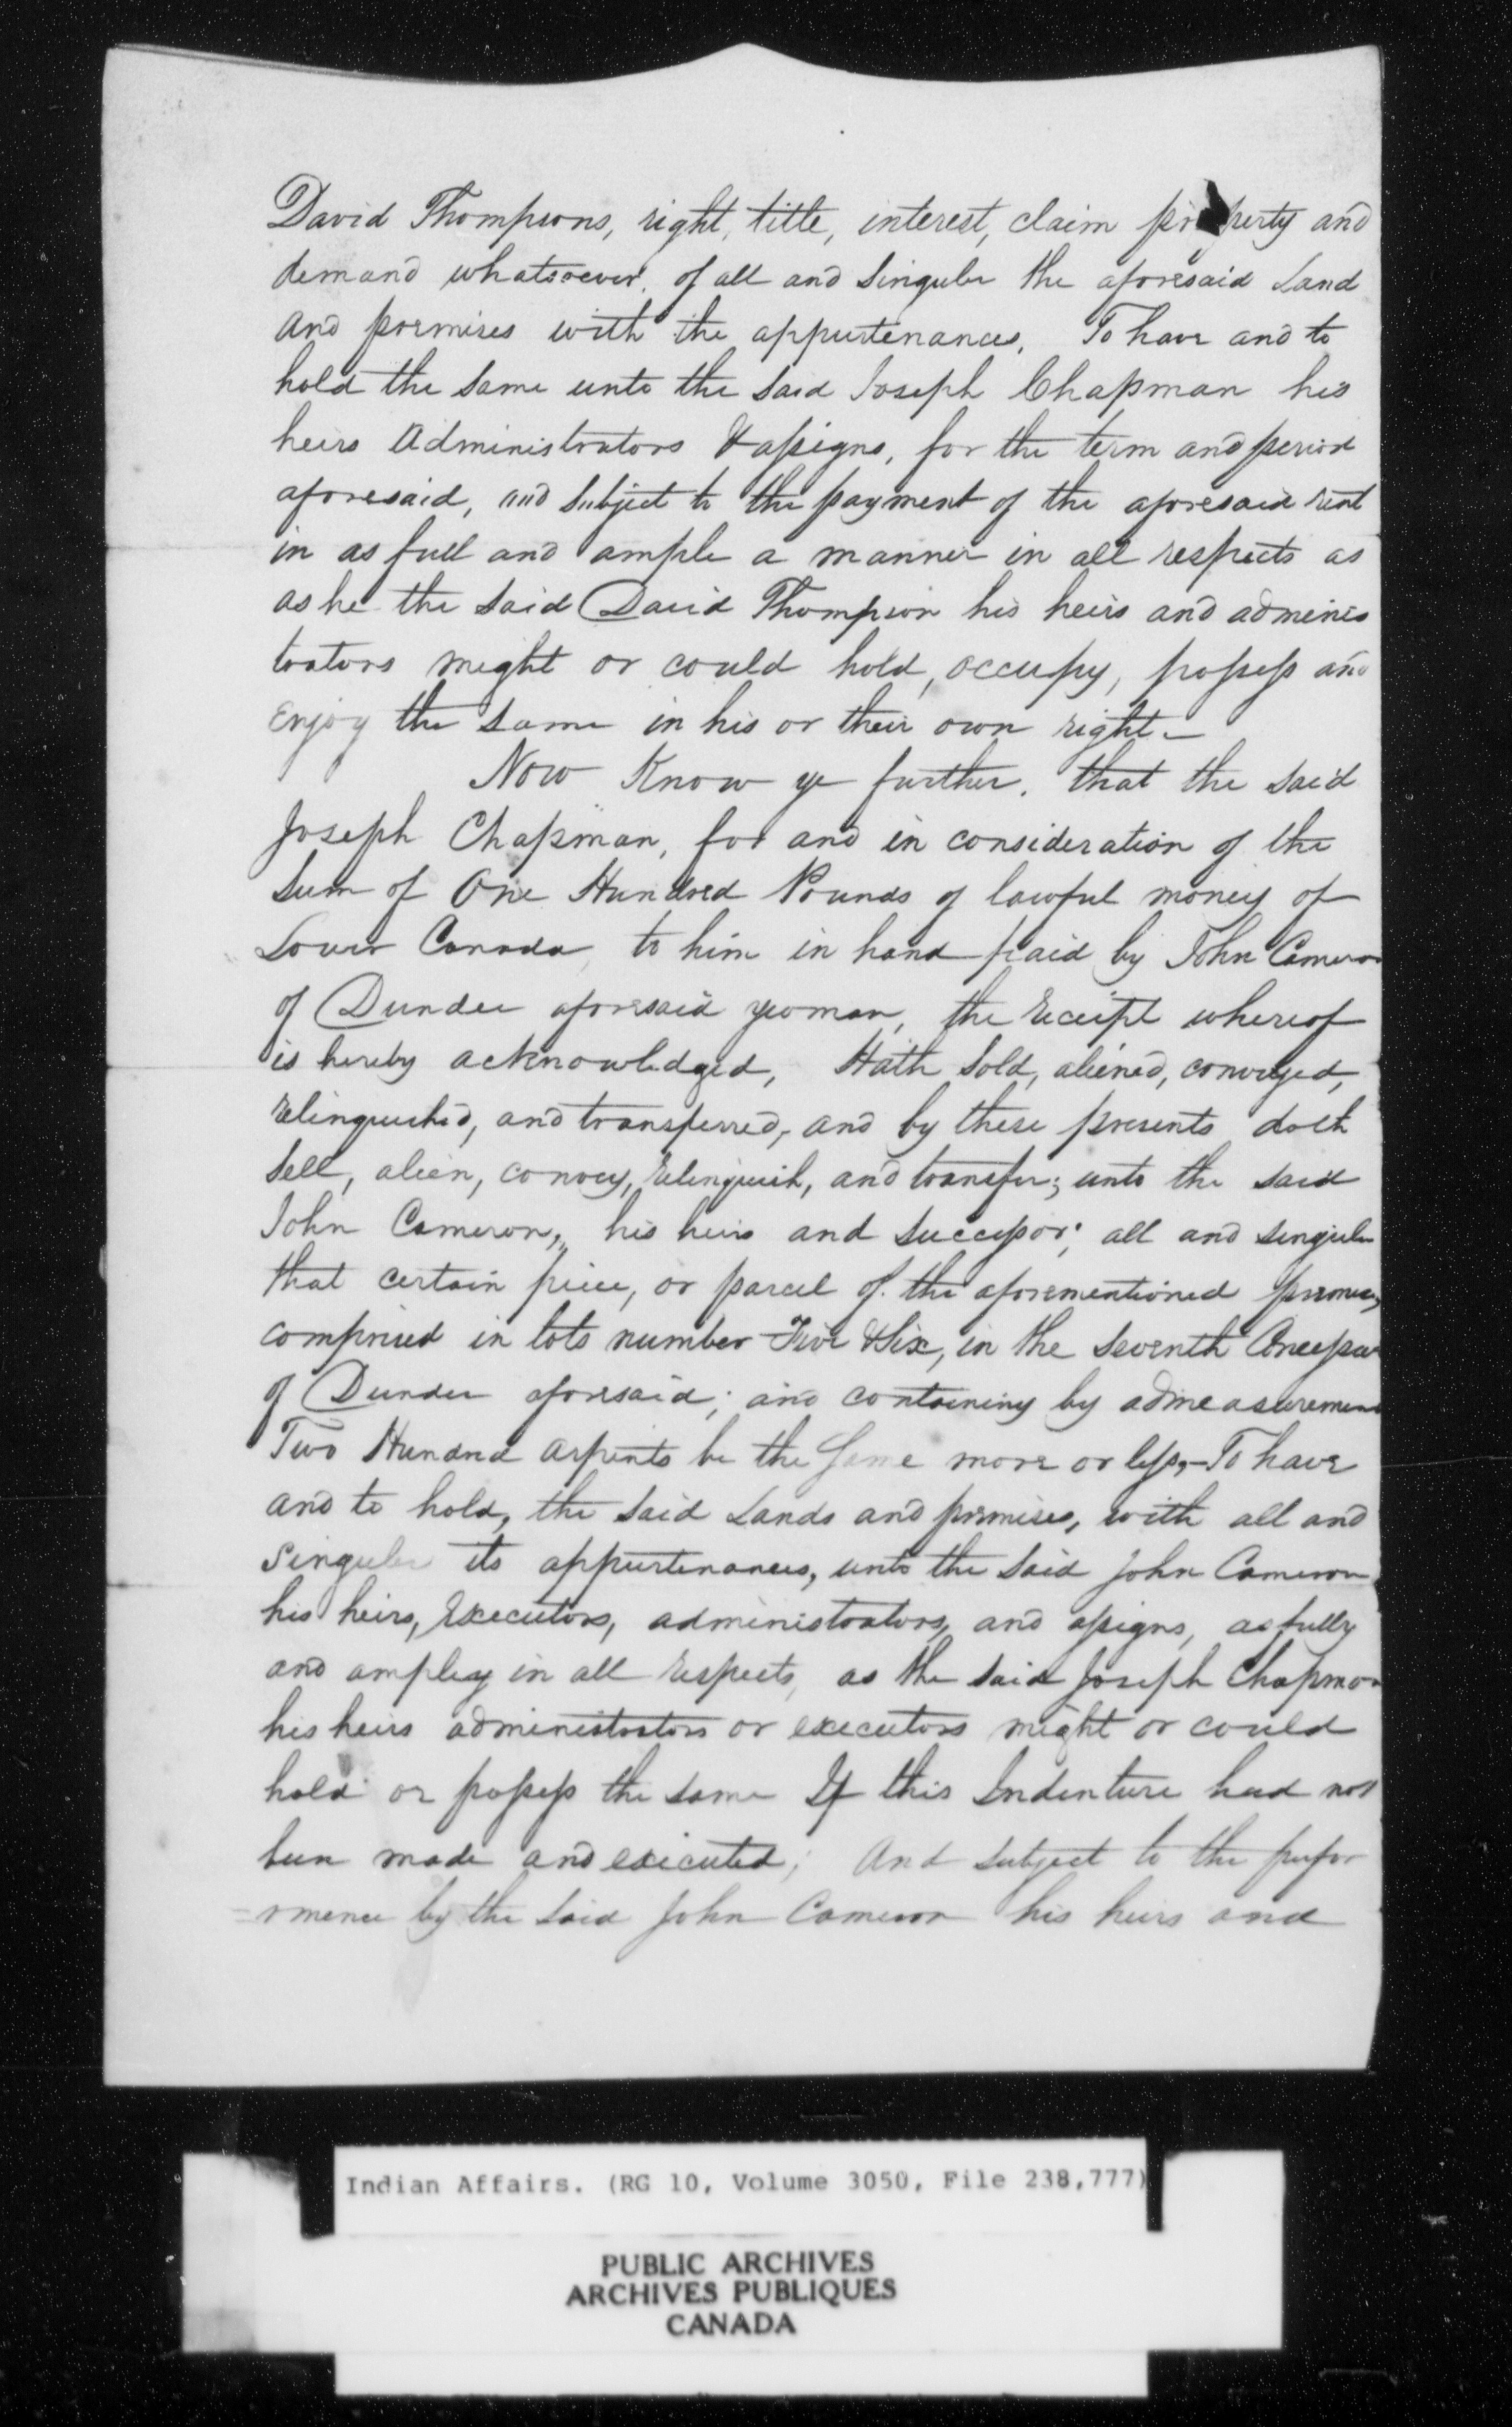 David Thompsons, right, title, interest, claim property and
demand whatsoever, of all and Singular the aforesaid Land
and premises with the appurtenances, To have and to
hold the Same unto the Said Joseph Chapman his
heirs Administrators & assigns, for the term and period
aforesaid, and Subject to the payment of the aforesaid rent
in as full and ample a manner in all respects as
as he the Said David Thompson his heirs and adminis
trators might or could hold, occupy, possess and
Enjoy the Same in his or their own right.—
Now Know ye further, that the Said
Joseph Chapman, for and in consideration of the
Sum of One Hundred Pounds of lawful money of
Lower Canada to him in hand paid by John Cameron
of Dundee aforesaid yeoman, the receipt whereof
is hereby acknowledged, Hath Sold, aliened, conveyed,
relinquished, and transferred, and by these presents doth
Sell, alien, convey, relinquish, and transfer; unto the Said
John Cameron, his heirs and Successor; all and Singular
that certain piece, or parcel of the aforementioned premises,
comprised in lots number Five & Six, in the Seventh Concession
of Dundee aforesaid; and containing by admeasurement
Two Hundred arpents be the Same more or less,— To have
and to hold, the Said Lands and premises, with all and
Singular its appurtenances, unto the Said John Cameron
his heirs, Executors, administrators, and assigns, as fully
and ampley in all respects, as the Said Joseph Chapman
his heirs administrators or executors might or could
hold or possess the Same If this Indenture had not
been made and executed; And Subject to the perfor
=rmence by the Said John Cameron his heirs and
Indian Affairs. (RG 10, Volume 3050, File 238,777)
PUBLIC ARCHIVES
ARCHIVES PUBLIQUES
CANADA